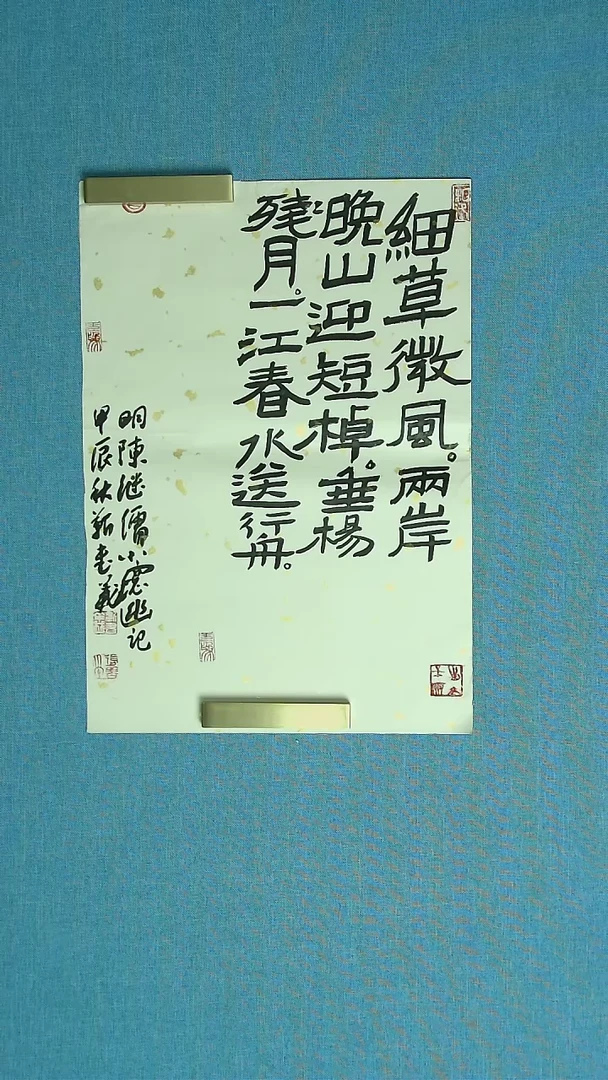 細草微風。兩岸
晚山迎短棹。垂楊
殘月。一江春水送行舟。
明陳继儒小窓幽记
甲辰秋